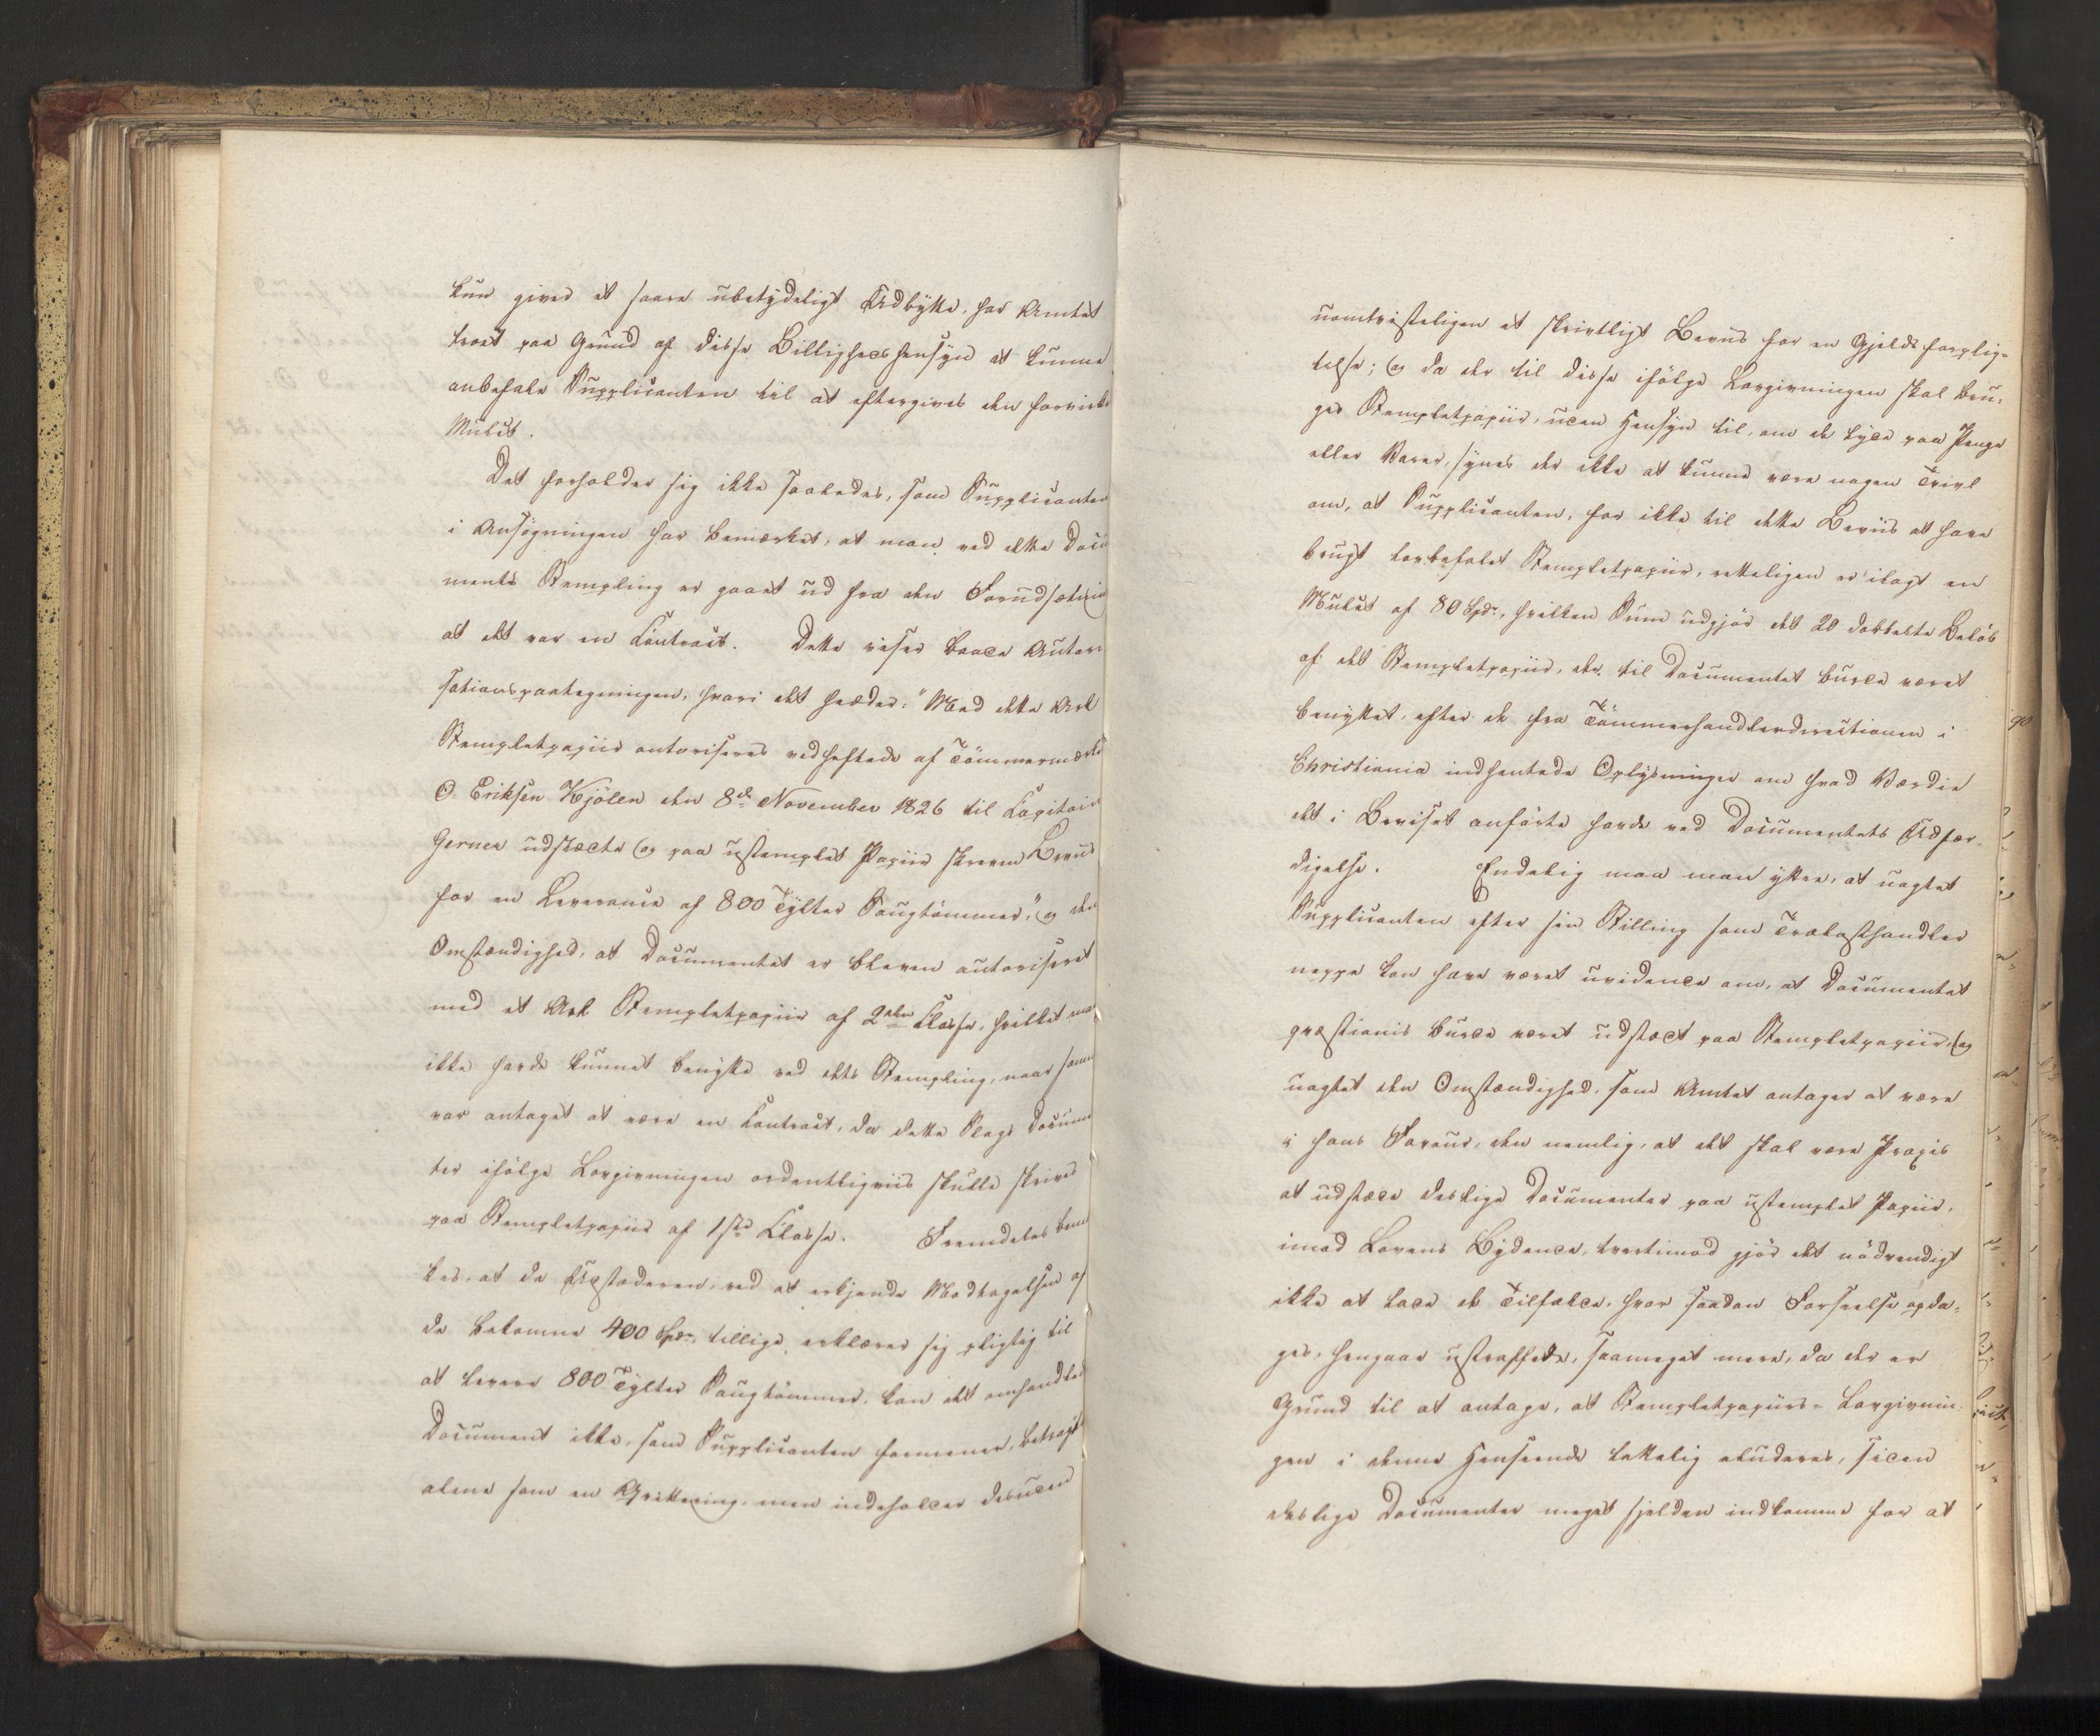 kun giver et saare ubetydeligt Udbytte, har Amtet
troet paa Grund af disse Billighedshensyn at kunne
anbefale Supplicanten til at eftergives den forvirkte
Mulct.
Det forholder sig ikke saaledes, som Supplicanten
i Ansøgningen har bemærket, at man ved dette Docu
ments Stempling er gaaet ud fra den Forudsætning
at det var en Contract. Dette viser baade Autori
sationspaategningen, hvori det hedder: "Med dette Ark
Stempletpapiir autoriseres vedheftede af Tømmermærker
O. Eriksen Kjölen den 8de November 1826 til Capitain
Gerner udstædte og paa ustemplet Papiir skrevne Beviis
for en Leverance af 800 Tylter Saugtömmer," og den
Omstændighed, at Documentet er bleven autoriseret
med et Ark Stempletpapiir af 2den Classe, hvilket man
ikke havde kunnet benytte ved dets Stempling, naar samme
var antaget at være en Contract, da dette Slags Documen
ter ifølge Lovgivningen ordentligviis skulle skrives
paa Stempletpapiir af 1ste Classe. Fremdeles bemær
kes, at da Udstæderen, ved at erkjende Modtagelsen af
de bekomne 400 Spd, tillige erklærer sig pligtig til
at levere 800 Tylter Saugtömmer, kan det omhandlede
Document ikke, som Supplicanten formener, betragtes
alene som en Qvittering, men indeholder desuden
uomtvisteligen et skriftligt Beviis for en Gjeldsforplig-
telse; og da der til disse ifølge Lovgivningen skal bru-
ges Stempletpapiir, uden Hensyn til, om de lyde paa Penge
eller Varer, synes der ikke at kunne være nogen Tvivl
om, at Supplicanten, for ikke til dette Beviis at have
brugt lovbefalet Stempletpapiir, retteligen er ilagt en
Mulct af 80 Spdr, hvilken Sum udgjør det 20 dobbelte Beløb
af det Stempletpapiir, der til Documentet burde været
benyttet, efter de fra Tømmerhandlerdirectionen i
Christiania indhentede Oplysninger om hvad Værdie
det i Beviset anførte havde ved Documentets Udfær-
digelse. Endelig maa man ytre, at uagtet
Supplicanten efter sin Stilling som Trælasthandler
neppe kan have været uvidende om, at Documentet
qvæstionis burde været udstædt paa Stempletpapiir, og
uagtet den Omstændighed, som Amtet antager at være
i hans Faveur, den nemlig, at det skal være Praxis
at udstæde deslige Documenter paa ustemplet Papiir,
imod Lovens Bydende, tvertimod gjør det nödvendigt
ikke at lade de Tilfælde, hvor saadan Forseelse opda-
ges, hengaae ustraffede, saameget mere, da der er
Grund til at antage, at Stempletpapiirs-Lovgivnin-
gen i denne Henseende lettelig eluderes, siden
deslige Documenter meget sjelden indkomme for at